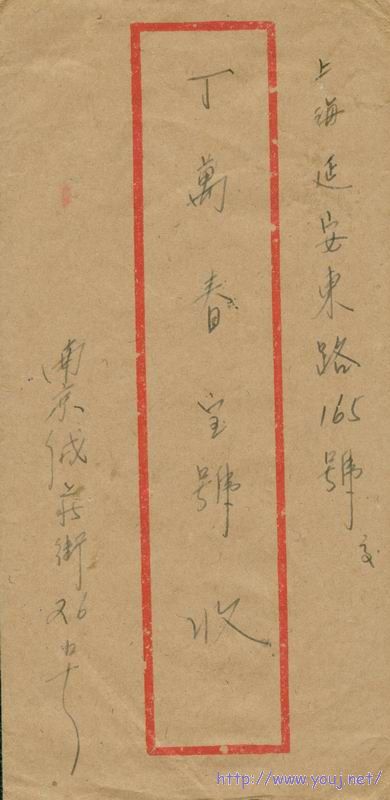 上海延安東路165號交
丁萬春宝號收
南京成莊街26号
http://www.youj.net/